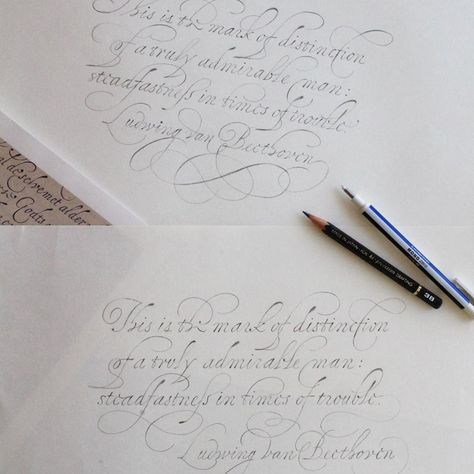 This is the mark of distinction
of a truly admirable man:
steadfastness in times of trouble.
Ludwing van Beethoven
met alder
Gods
3B
This is the mark of distinction
of a truly admirable man:
steadfastness in times of trouble.
Ludwing van Beethoven